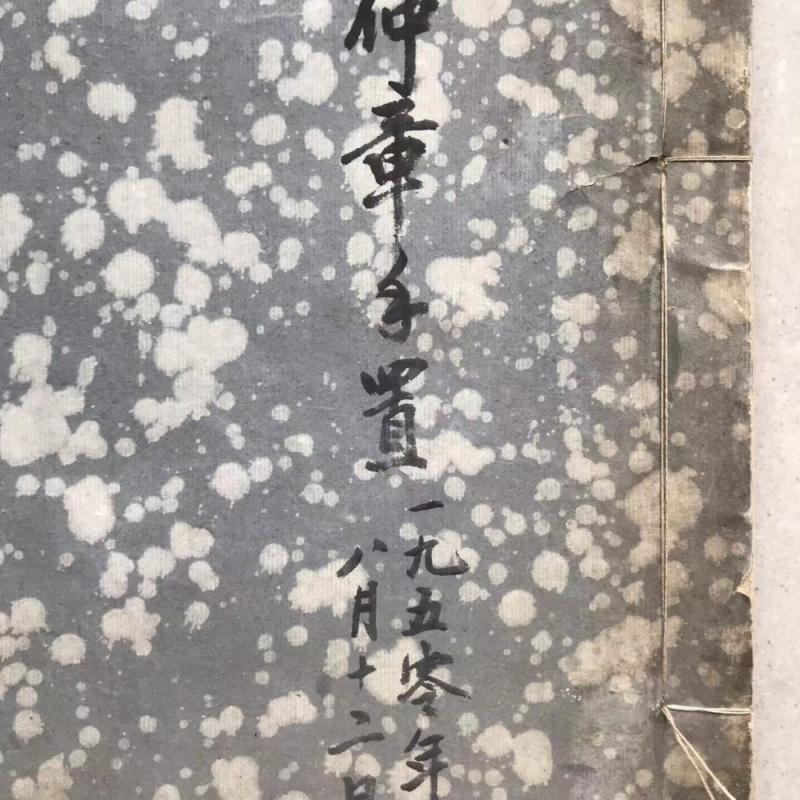 仲章手置
一九五零年
八月十二日